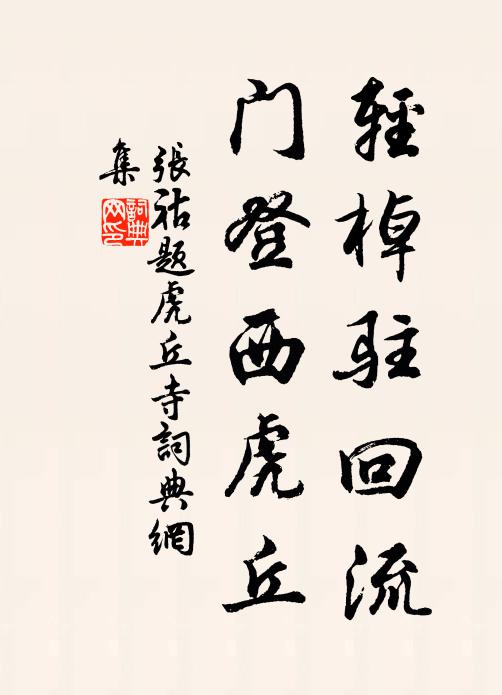 輕棹駐回流
门登西虎丘
張祜題虎丘寺詞典網
集
詞典
网印